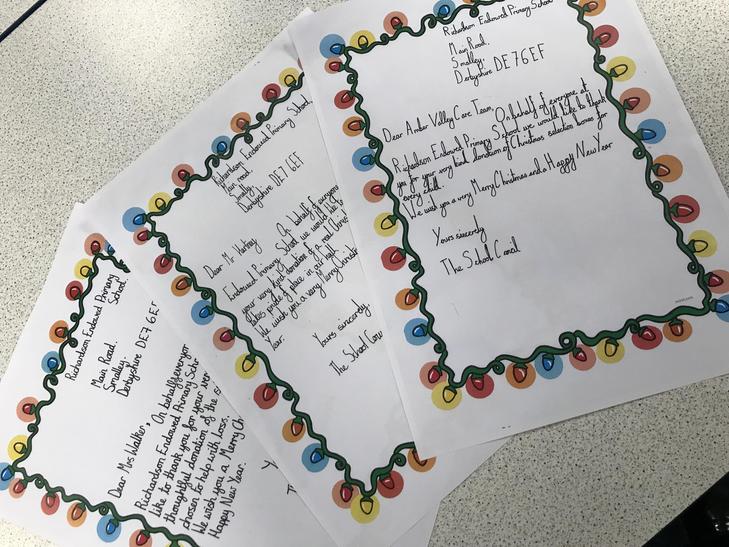 Richardson Endowed Primary
School.
Main Road.
Smalley.
Derbyshire DE7 6EF
Dear Mrs Walker,
On behalf everyon
Richardson Endowed Primary Sch
like to thank you for your ver
thoughtful donation of the
chosen to help with Loss.
We wish you a Merry Ch
Happy New Year.
Y
T
Richardson Endowed Primary School.
Main road.
Smalley
Derbyshire DE7 6EF
Dear Mr
On behalf of everyone
Endowed Primary School we would like to
your very kind donation of a real
takes pride of place in our hall
We wish you a very Merry Christm
Year.
Yours sincerely,
The School Coun
Richardson Endowed Primary School
Main Road.
Smalley.
Derbyshire DE7 6EF
Dear Amber Valley Care Team,
On behalf of everyone at
Richardson Endowed Primary School we would like to thank
you for your very kind donation of Christmas selection boxes for
every child.
We wish you a very Merry Christmas and a Happy New Year
Yours sincerely
The School Council